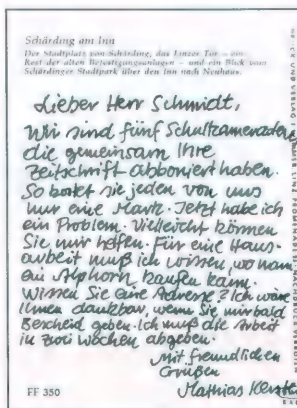 Schärding am Inn
Der Stadtplatz von Schärding, das Linzer Tor – ein
Rest der alten Befestigungsanlagen – und ein Blick vom
Schärdinger Stadtpark über den Inn nach Neuhaus.
Lieber Herr Schmidt,
Wir sind fünf Schulkameraden
die gemeinsam Ihre
Zeitschrift abboniert haben.
So kostet sie jeden von uns
nur eine Mark. Jetzt habe ich
ein Problem. Vielleicht können
Sie mir helfen. Für eine Haus-
arbeit muß ich wissen, wo man
ein Alphorn kaufen kann.
Wissen Sie eine Adresse? Ich wäre
Ihnen dankbar, wenn Sie mir bald
Bescheid geben. Ich muß die Arbeit
in zwei Wochen abgeben.
Mit freundlichen
Grüßen
Matthias
FF 350